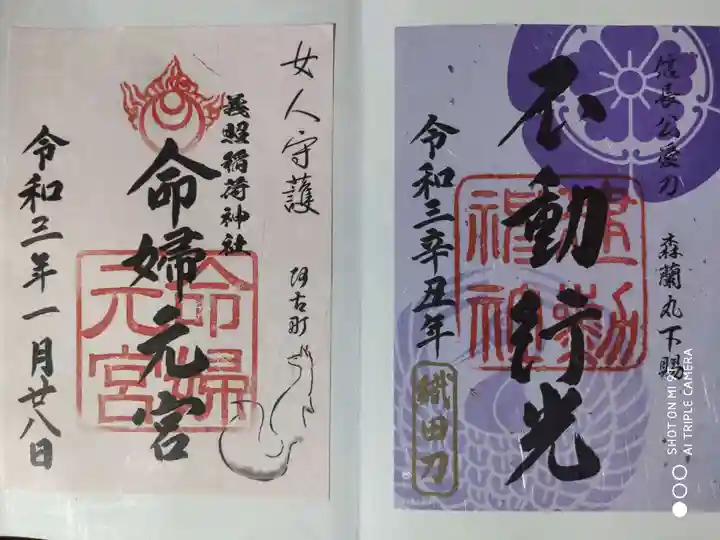 女人守護
阿古町
義照稲荷神社
命婦元宮
命婦元宮
令和三年一月廿八日
信長公愛刀
森蘭丸下賜
不動行光
建勲神社
令和三辛丑年
織田刀
SHOT ON MI 9
AI TRIPLE CAMERA